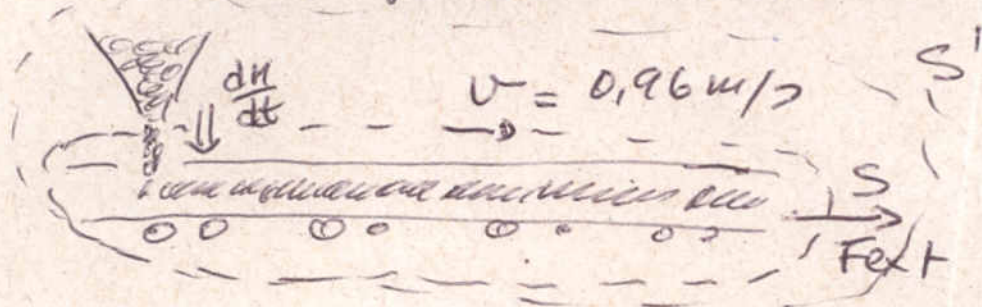 dM/dt
v = 0,96 m/s
S'
S
Fext